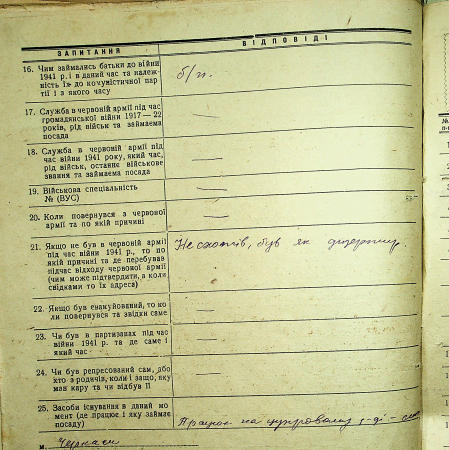 ЗАПИТАННЯ
ВІДПОВІДІ
16. Чим займались батьки до війни
1941 р. і в даний час та належ-
ність їх до комуністичної пар
тії і з якого часу
б/п.
17. Служба в червоній армії під час
громадянської війни 1917—22
років, рід військ та займаема
посада
—
18. Служба в червоній армії під
час війни 1941 року, який час,
рід військ, останнє військове
звання та займаема посада
—
19. Військова спеціальність
№ (ВУС)
—
20. Коли повернувся з червоної
армії та по якій причині
—
21. Якщо не був в червоній армії
під час війни 1941 р., то по
якій причині та де перебував
підчас відходу червоної армії
(чим може підтвердити, а коли
свідками то їх адреса)
Не схотів, був як дизертир
22. Якщо був евакуйований, то ко
ли повернувся та звідки саме
—
23. Чи був в партизанах під час
війни 1941 р. та де саме і
який час
—
24. Чи був репресований сам, або
хто з родичів, коли і защо, яку
мав кару та чи відбув її
—
25. Засоби існування в даний мо
мент (де працює і яку займає
посаду)
на цукровому
м. Черкаси